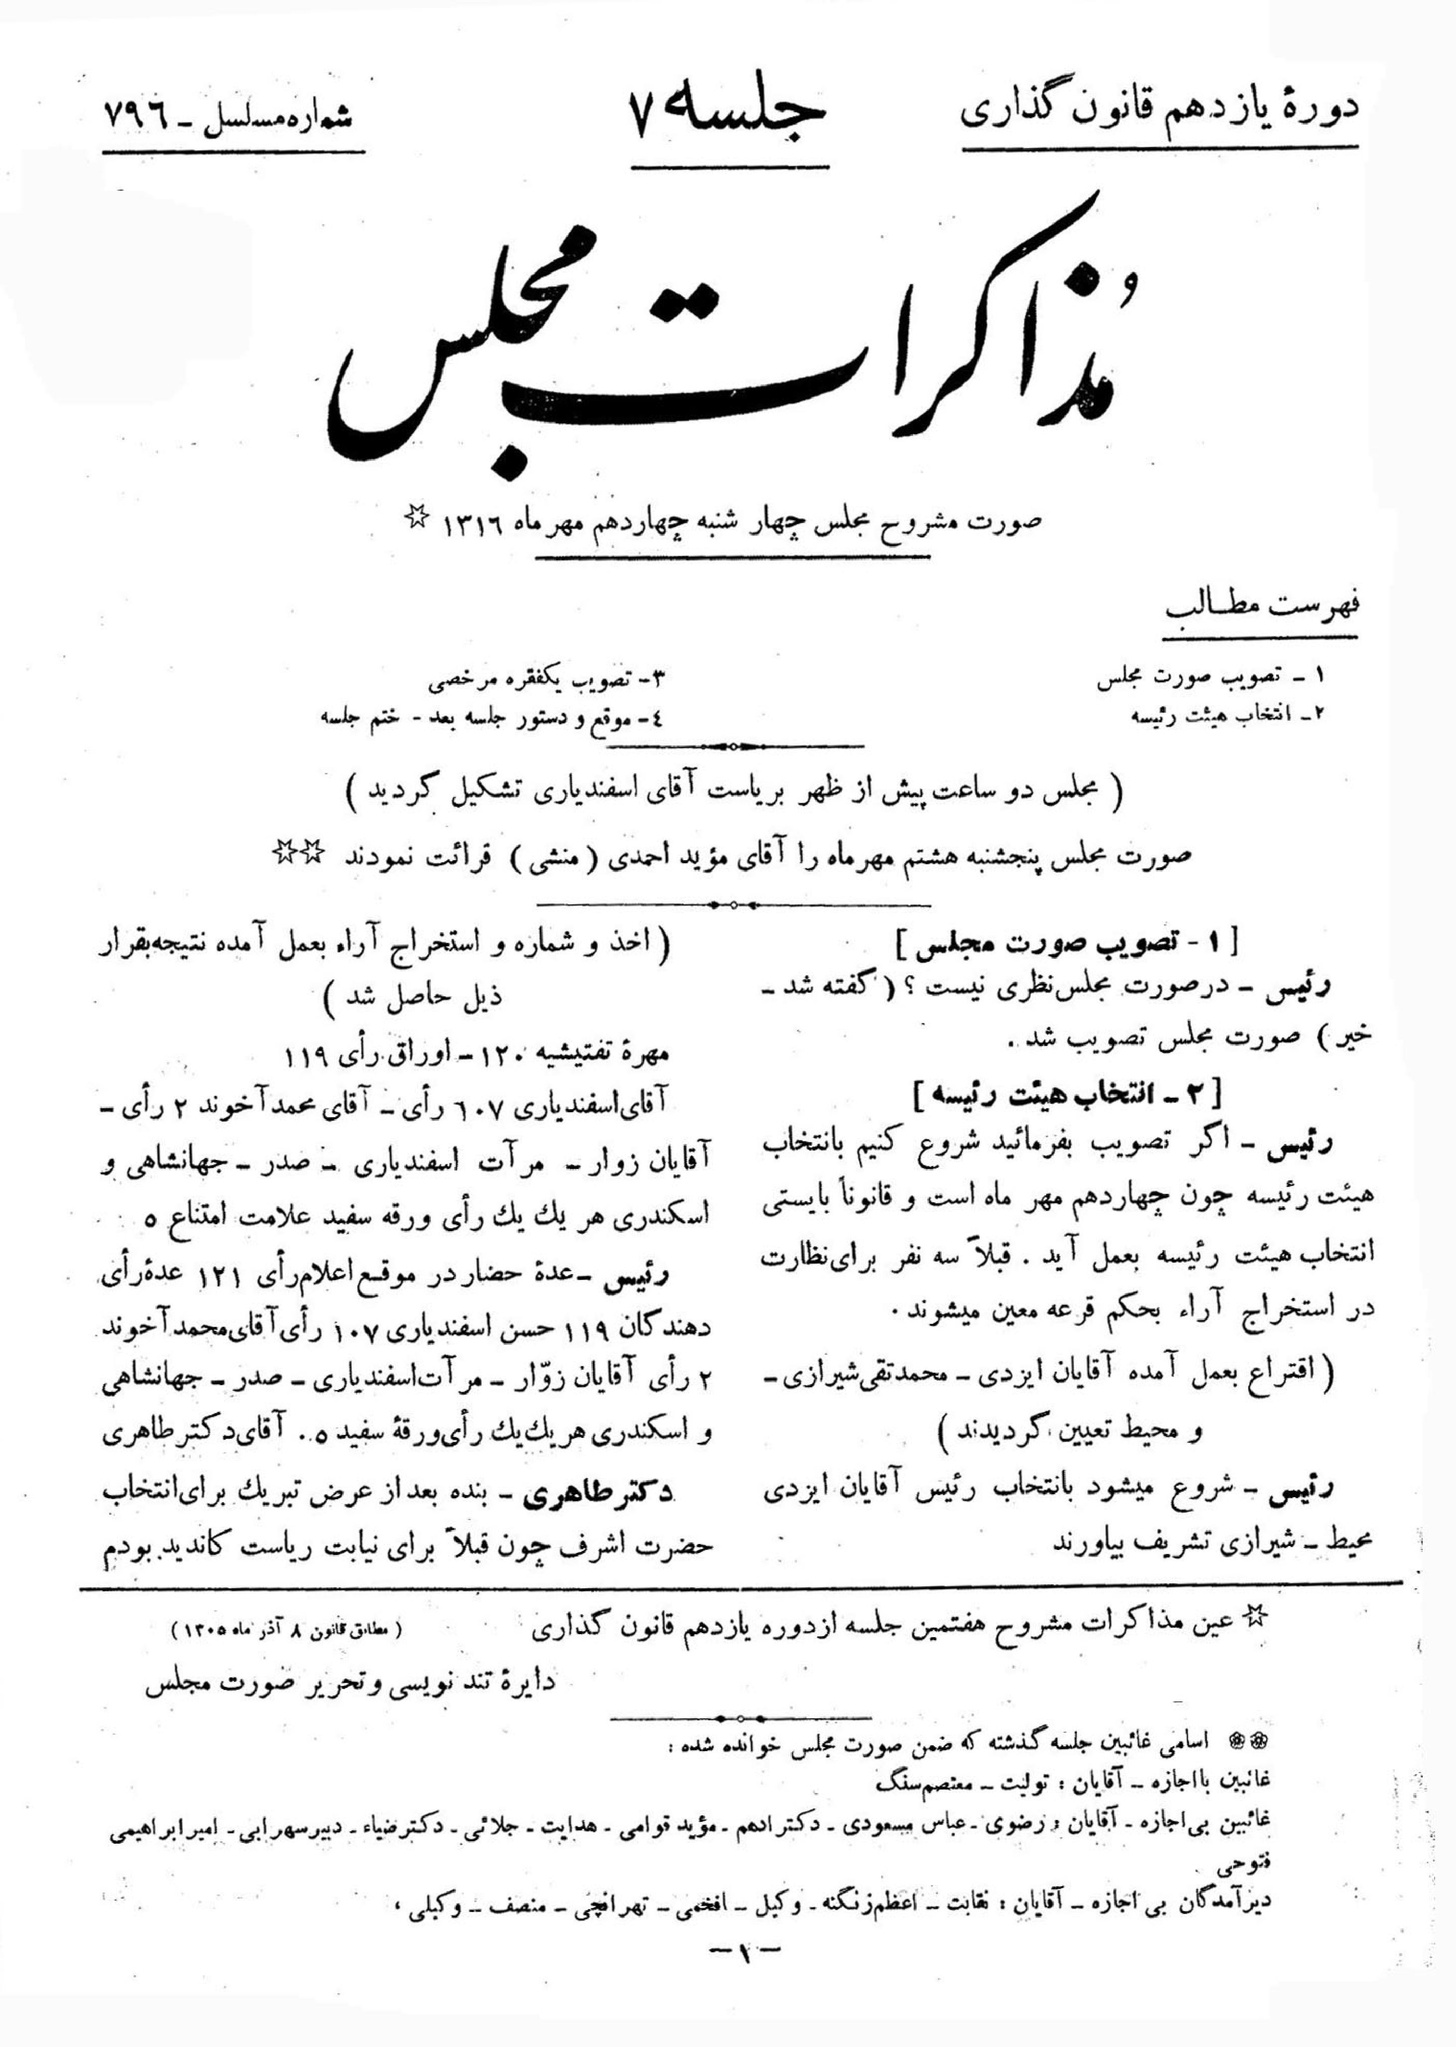 دورهٔ یازدهم قانون گذاری
جلسه ۷
شماره مسلسل ـ ۷۹۶
مُذاکرات مجلس
صورت مشروح مجلس چهار شنبه چهاردهم مهر ماه ۱۳۱۶ ☆
فهرست مطالب
۱ ـ تصویب صورت مجلس
۲ـ انتخاب هیئت رئیسه
۳- تصویب یکفقره مرخصی
٤- موقع و دستور جلسه بعد - ختم جلسه
( مجلس دو ساعت پیش از ظهر بریاست آقای اسفندیاری تشکیل گردید )
صورت مجلس پنجشنبه هشتم مهرماه را آقای مؤید احمدی ( منشی ) قرائت نمودند ☆☆
[ ۱ - تصویب صورت مجلس ]
رئیس ـ درصورت مجلس نظری نیست ؟ ( گفته شد ـ
خیر ) صورت مجلس تصویب شد .
[ ۲ ـ انتخاب هیئت رئیسه ]
رئیس ـ اگر تصویب بفرمائید شروع کنیم بانتخاب
هیئت رئیسه چون چهاردهم مهر ماه است و قانوناً بایستی
انتخاب هیئت رئیسه بعمل آید . قبلاً سه نفر برای نظارت
در استخراج آراء بحکم قرعه معین میشوند .
( اقتراع بعمل آمده آقایان ایزدی ـ محمدتقی شیرازی ـ
و محیط تعیین گردیدند )
رئیس ـ شروع میشود بانتخاب رئیس آقایان ایزدی
محیط ـ شیرازی تشریف بیاورند
( اخذ و شماره و استخراج آراء بعمل آمده نتیجه بقرار
ذیل حاصل شد )
مهرهٔ تفتیشیه ۱۲۰ ـ اوراق رأی ۱۱۹
آقای اسفندیاری ۱۰۷ رأی ـ آقای محمد آخوند ۲ رأی ـ
آقایان زوار ـ مرآت اسفندیاری ـ صدر ـ جهانشاهی و
اسکندری هر یك یك رأی ورقه سفید علامت امتناع ۵
رئیس ـ عدهٔ حضار در موقع اعلام رأی ۱۲۱ عدهٔ رأی
دهندگان ۱۱۹ حسن اسفندیاری ۱۰۷ رأی آقای محمد آخوند
۲ رأی آقایان زوّار ـ مرآت اسفندیاری ـ صدر ـ جهانشاهی
و اسکندری هر یك یك رأی ورقهٔ سفید ۵ . آقای دکتر طاهری
دکتر طاهری ـ بنده بعد از عرض تبریك برای انتخاب
حضرت اشرف چون قبلاً برای نیابت ریاست کاندید بودم
☆ عین مذاکرات مشروح هفتمین جلسه از دوره یازدهم قانون گذاری ( مطابق قانون ۸ آذر ماه ۱۳۰۵ )
دایرهٔ تند نویسی و تحریر صورت مجلس
❀❀ اسامی غائبین جلسه گذشته که ضمن صورت مجلس خوانده شده :
غائبین با اجازه ـ آقایان : تولیت ـ معتصم سنگ
غائبین بی اجازه ـ آقایان : رضوی ـ عباس مسعودی ـ دکتر ادهم ـ مؤید قوامی ـ هدایت ـ جلائی ـ دکتر ضیاء ـ دبیر سهرابی ـ امیر ابراهیمی
فتوحی
دیرآمدگان بی اجازه ـ آقایان : نقابت ـ اعظم زنگنه ـ وکیل ـ افخمی ـ تهرانچی ـ منصف ـ وکیلی ،
ـ ۱ ـ